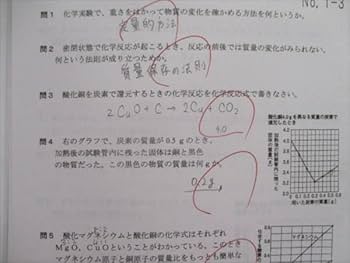 No. 1-3
問1 化学実験で、重さをはかって物質の変化を確かめる方法を何というか。
定量的方法
問2 密閉状態で化学反応が起こるとき、反応の前後では質量の変化がみられない。
何という法則が成り立つためか。
質量保存の法則
問3 酸化銅を炭素で還元するときの化学反応を化学反応式で書きなさい。
2CuO + C → 2Cu + CO2
4.0
問4 右のグラフで、炭素の質量が0.5gのとき、
加熱後の試験管内に残った固体は銅と黒色
の物質だった。この黒色の物質の質量は何gか。
0.2g
酸化銅4.0gを異なる質量の炭素で
還元したとき
4.2
4.0
3.8
3.6
3.4
3.2
問5 酸化マグネシウムと酸化銅の化学式はそれぞれ
MgO、CuOということがわかっている。このとき
マグネシウム原子と銅原子の質量比をもっとも簡単な
マグネシウム